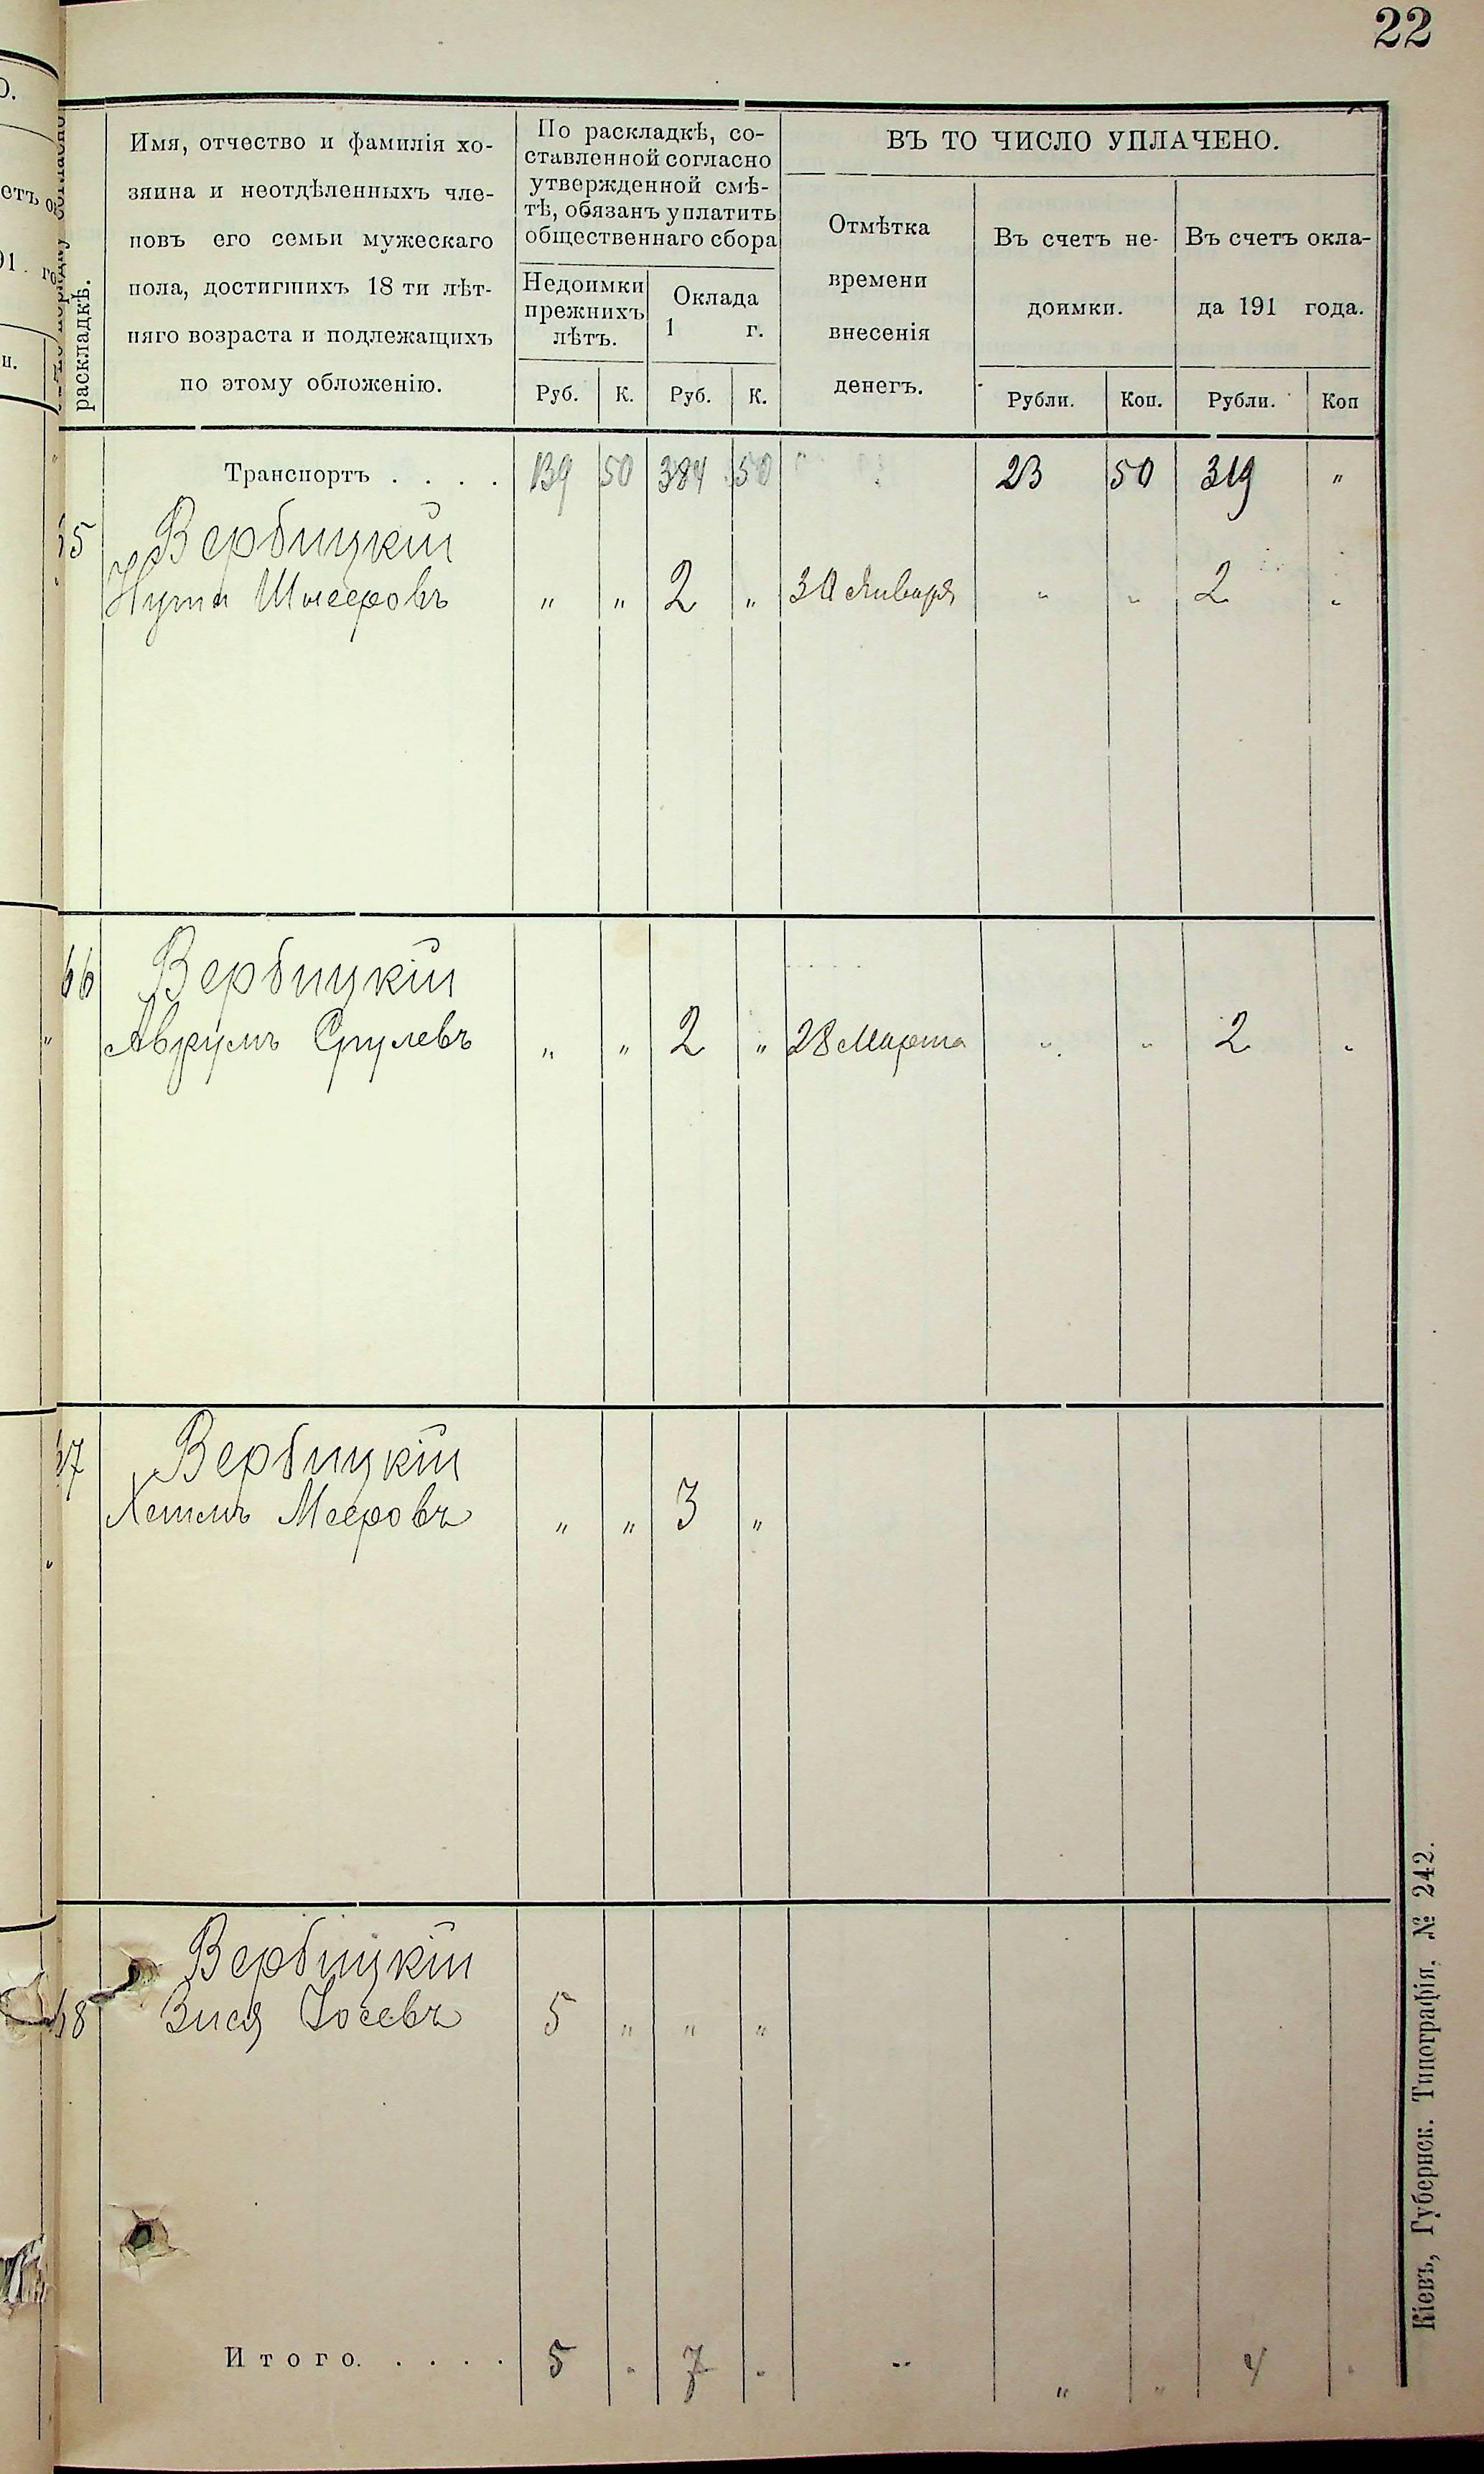 22
Имя, отчество и фамилія хо-
зяина и неотдѣленныхъ чле-
новъ его семьи мужескаго
пола, достигшихъ 18 ти лѣт-
няго возраста и подлежащихъ
по этому обложенію.
По раскладкѣ, со-
ставленной согласно
утвержденной смѣ-
тѣ, обязанъ уплатить
общественнаго сбора
Недоимки
прежнихъ
лѣтъ.
Оклада
1 г.
Руб. К. Руб. К.
ВЪ ТО ЧИСЛО УПЛАЧЕНО.
Отмѣтка
времени
внесенія
денегъ.
Въ счетъ не-
доимки.
Рубли. Коп.
Въ счетъ окла-
да 191 года.
Рубли. Коп
раскладкѣ.
Транспортъ . . . . 139 50 384 50 23 50 319 "
65 Вербицкій
Нута Шмееровъ " " 2 " 30 Января " " 2 "
66 Вербицкій
Аврумъ Срулевъ " " 2 " 28 Марта " " 2 "
67 Вербицкій
Хаимъ Мееровъ " " 3 "
Вербицкій
68 Зися Іосевъ 5 " " "
Итого. . . . . 5 " 7 " " " " 4 "
Кіевъ, Губернск. Типографія, № 242.